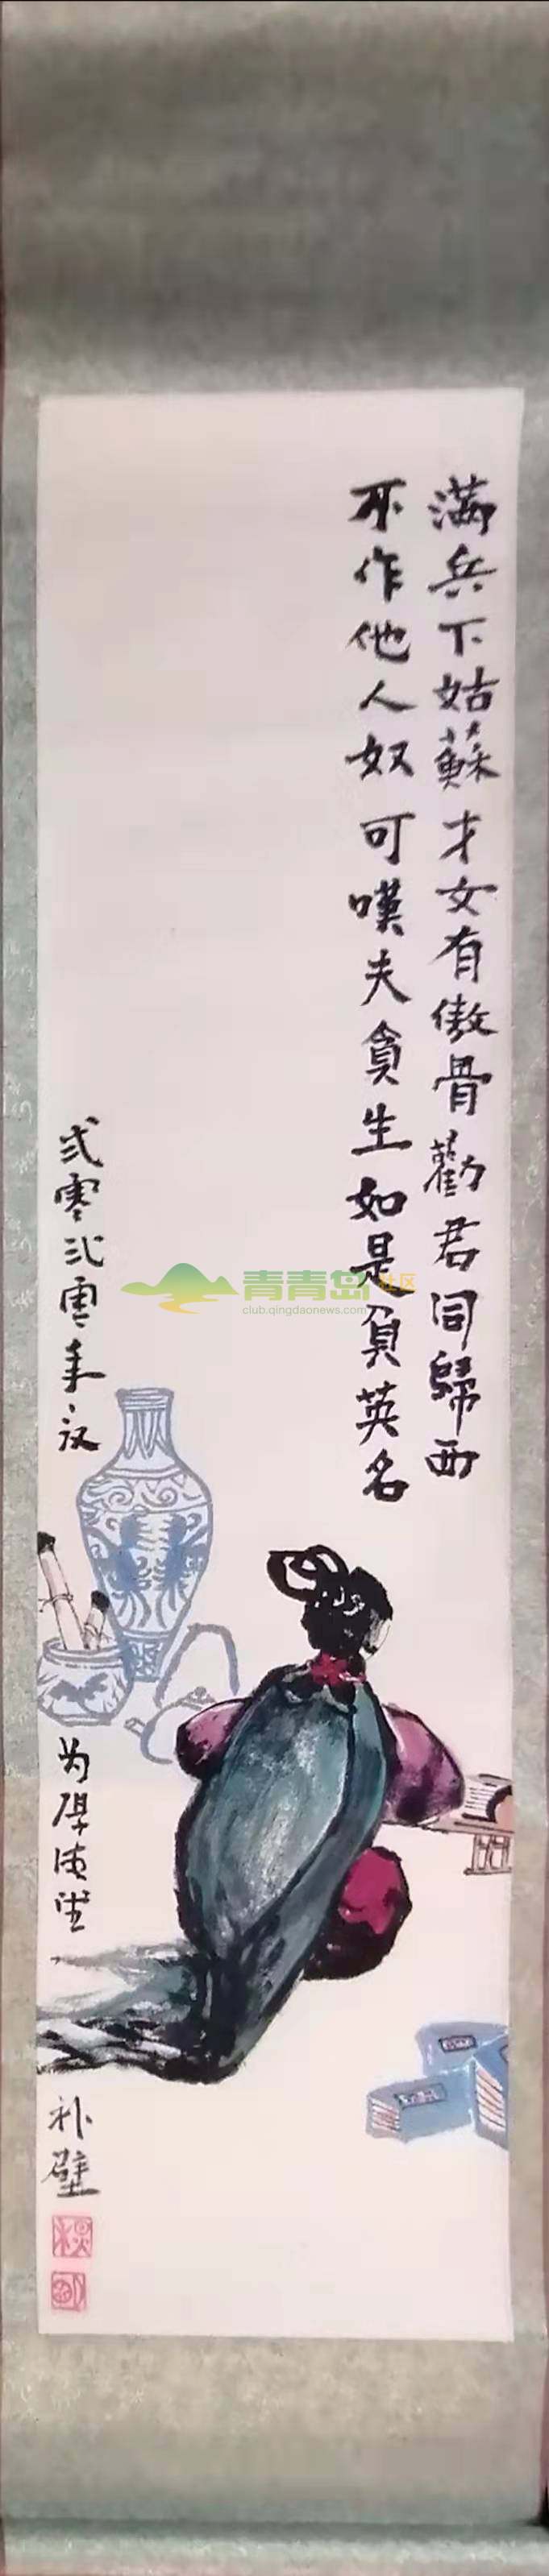 满兵下姑蘇才女有傲骨勸君同歸西
不作他人奴可嘆夫貪生如是負英名
弍零弍零年
为
补壁
青青岛社区
club.qingdaonews.com